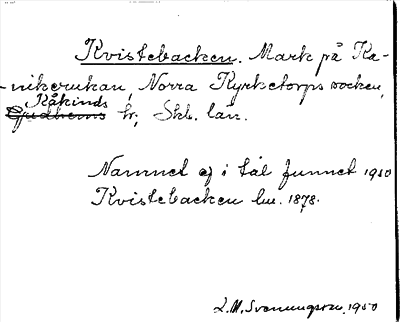 Kvistebacken. Mark på Ka-
-nikerukan, Norra Kyrketorps socken,
Kåkinds
Gudhems hr, Skb. län.
Namnet ej i tal funnet 1950
Kvistebacken lm. 1878.
L.M. Svenungsson, 1950